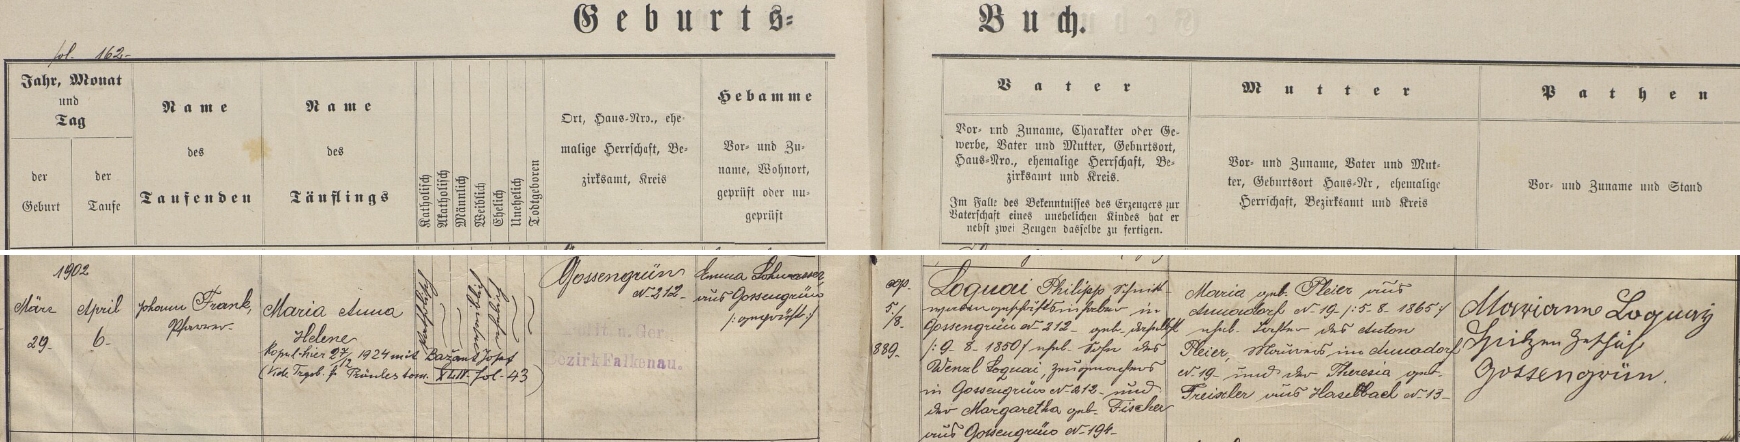 Geburts-
Buch.
fol. 162-
Jahr, Monat
und
Tag
der
Geburt
der
Taufe
Name
des
Taufenden
Name
des
Täuflings
Katholisch
Akatholisch
Männlich
Weiblich
Ehelich
Unehelich
Todtgeboren
Ort, Haus-Nro., ehe-
malige Herrschaft, Be-
zirksamt, Kreis
Hebamme
Vor- und Zu-
name, Wohnort,
geprüft oder un-
geprüft
Vater
Vor- und Zuname, Charakter oder Ge-
werbe, Vater und Mutter, Geburtsort,
Haus-Nro., ehemalige Herrschaft, Be-
zirksamt und Kreis.
Im Falle des Bekenntnisses des Erzeugers zur
Vaterschaft eines unehelichen Kindes hat er
nebst zwei Zeugen dasselbe zu fertigen.
Mutter
Vor- und Zuname, Vater und Mut-
ter, Geburtsort Haus-Nr, ehemalige
Herrschaft, Bezirksamt und Kreis
Pathen
Vor- und Zuname und Stand
1902
März
29-
April
6-
Johann Frank,
Pfarrer
Maria Anna
Helene
kopul. hier 27/7 1924 mit Bažant Josef
(Vide Tagb. f. Trauungen tom. XLIII fol-43)
katholisch
weiblich
ehelich
Gossengrün
N-212-
Polit. u. Ger.
Bezirk Falkenau.
Emma
aus Gossengrün
/: geprüft :/
cop.
5./8.
889-
Loquai Philipp Schnitt-
warengeschäftsinhaber in
Gossengrün N-212- geb. daselbst
/: 9-8-1850 :/ ehel. Sohn des
Wenzl Loquai, Zeugmachers
in Gossengrün N-212- und
der Margaretha geb. Fischer
aus Gossengrün N-194-
Maria geb. Pleier aus
Annadorf N-19- /: 5-8-1865 :/
ehel. Tochter des Anton
Pleier, Maurers in Annadorf
N-19- und der Theresia geb.
Treisler aus Haselbach N-13-
Marianne Loquaiz
Spitzen Geschäf
Gossengrün.